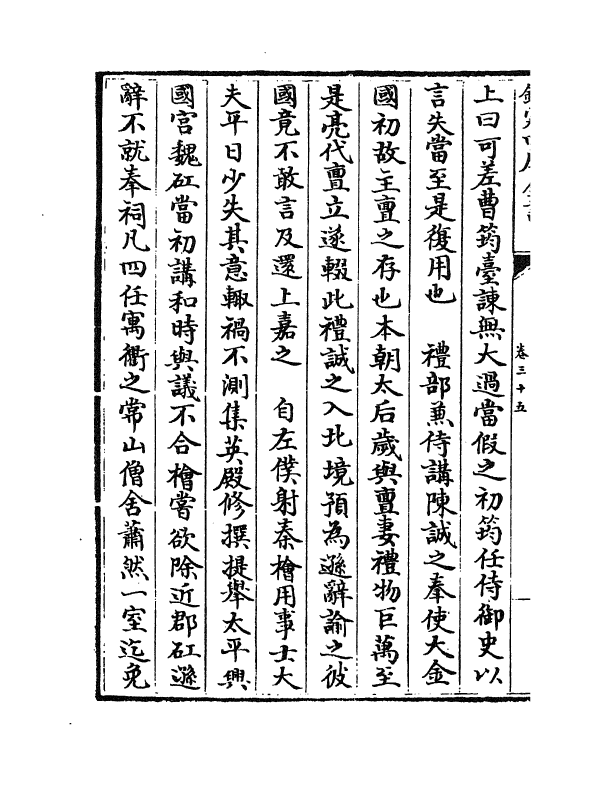 欽定四庫全書
卷三十五
上曰可差曹筠臺諫無大過當假之初筠任侍御史以
言失當至是復用也　禮部兼侍講陳誠之奉使大金
國初故主亶之存也本朝太后歲與亶妻禮物巨萬至
是亮代亶立遂輟此禮誠之入北境預為遜辭諭之彼
國竟不敢言及還上嘉之　自左僕射秦檜用事士大
夫平日少失其意輙禍不測集英殿修撰提舉太平興
國宮魏矼當初講和時與議不合檜嘗欲除近郡矼遜
辭不就奉祠凡四任寓衢之常山僧舍蕭然一室迄免